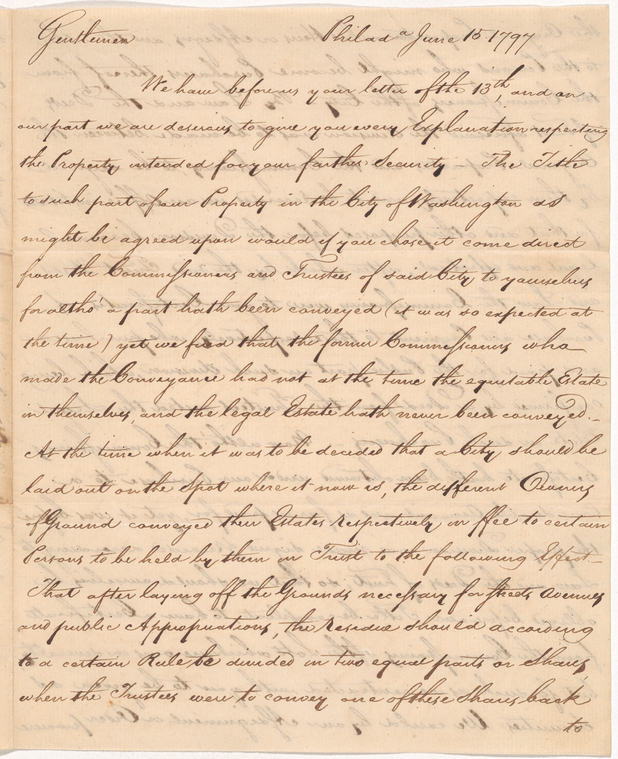 Gentlemen Philada June 15 1797
We have before us your letter of the 13th, and on
our part we are desirous to give you every Explanation respecting
the Property intended for your farther Security – The Title
to such part of our Property in the City of Washington as
might be agreed upon would if you chose it come direct
from the Commissioners and Trustees of said City to yourselves
for altho' a part hath been conveyed (it was so expected at
the time) yet we find that the former Commissioners who
made the Conveyance had not at the time the equitable Estate
in themselves, and the legal Estate hath never been conveyed. –
At the time when it was to be decided that a City should be
laid out on the Spot where it now is, the different Owners
of Ground conveyed their Estates respectively in ffee to certain
Persons to be held by them in Trust to the following Effect –
That after laying off the Grounds necessary for Streets Avenues
and public Appropriations, the residue should according
to a certain Rule be divided in two equal parts or Shares,
when the Trustees were to convey one of these Shares back
to